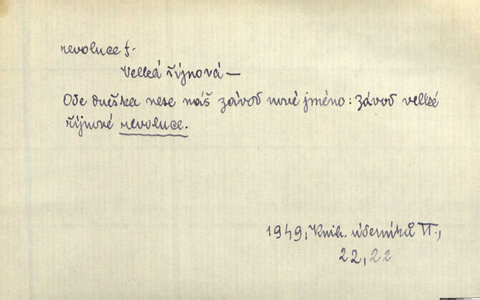 revoluce f.
Velká říjnová —
Ode dneška nese náš závod nové jméno: závod velké
říjnové revoluce.
1949, Knih. úderníků VI.,
22, 22.